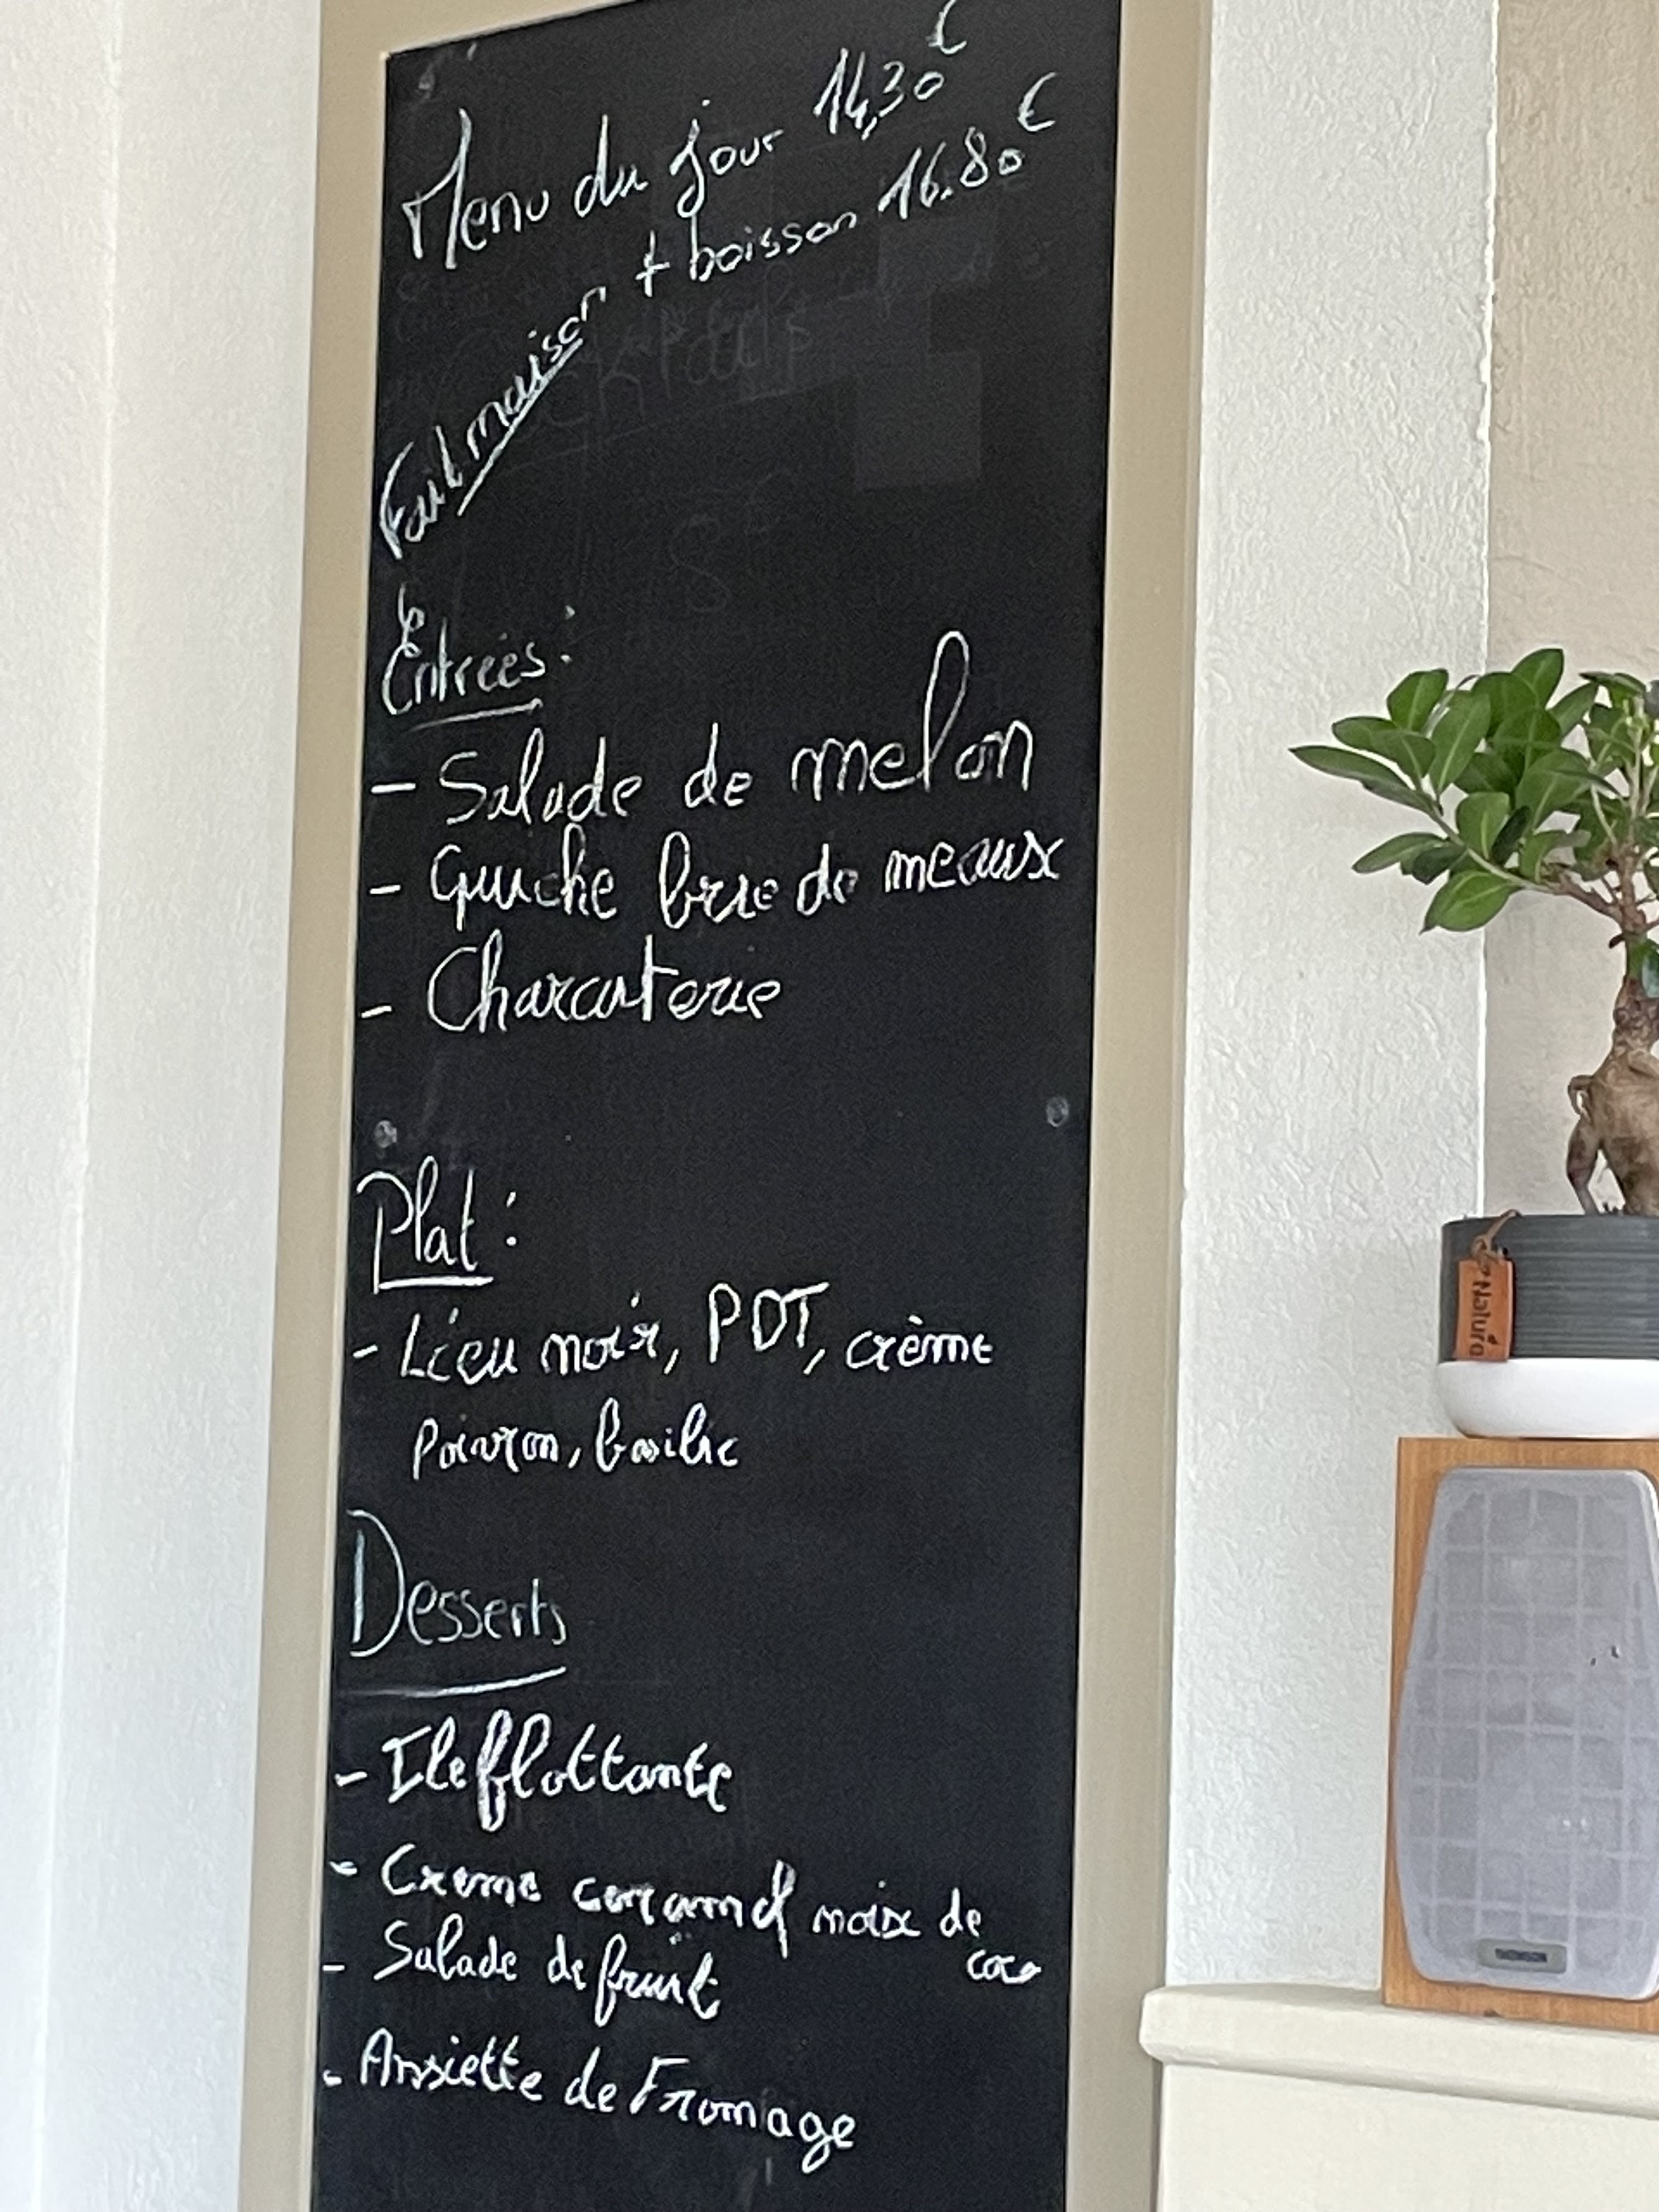 Menu du jour 14,30€
+ boisson 16.80€
Fait maison
Entrées :
- Salade de melon
- Quiche brie de meaux
- Charcuterie
Plat :
- Lieu noir, PDT, crème
poivron, basilic
Desserts
- Ile flottante
- Creme caramel noix de
coco
- Salade de fruit
- Assiette de Fromage
Naturé
THOMSON